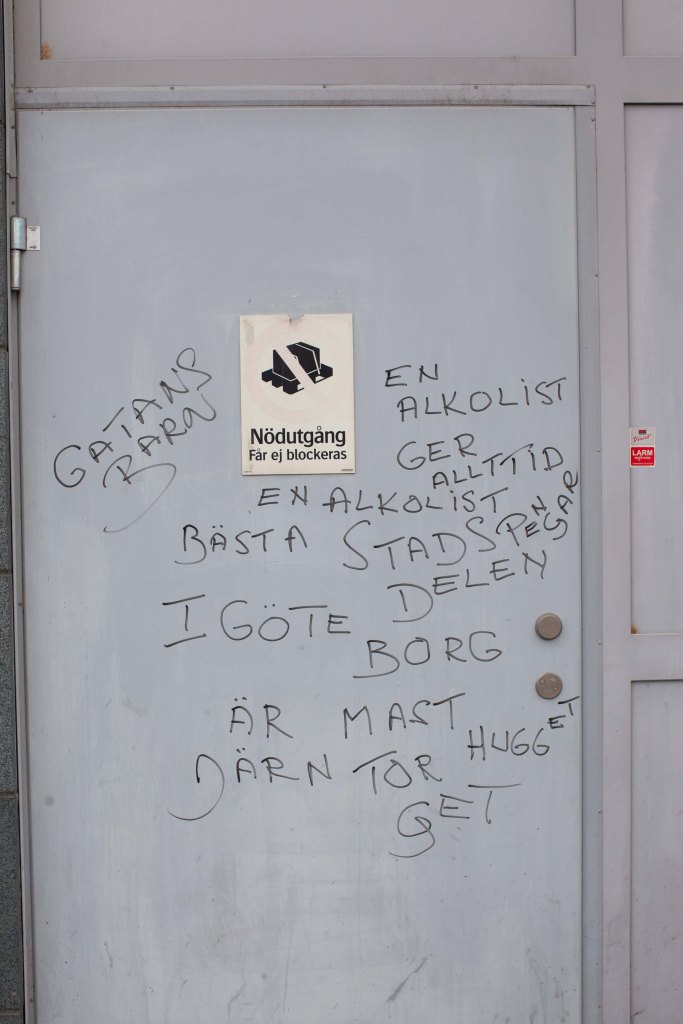 GATANS
BARN
Nödutgång
Får ej blockeras
EN
ALKOLIST
GER
ALLTTID
EN ALKOLIST
PENGAR
BÄSTA STADS
DELEN
I GÖTE
BORG
ÄR MAST
HUGGET
JÄRN TOR
GET
LARM